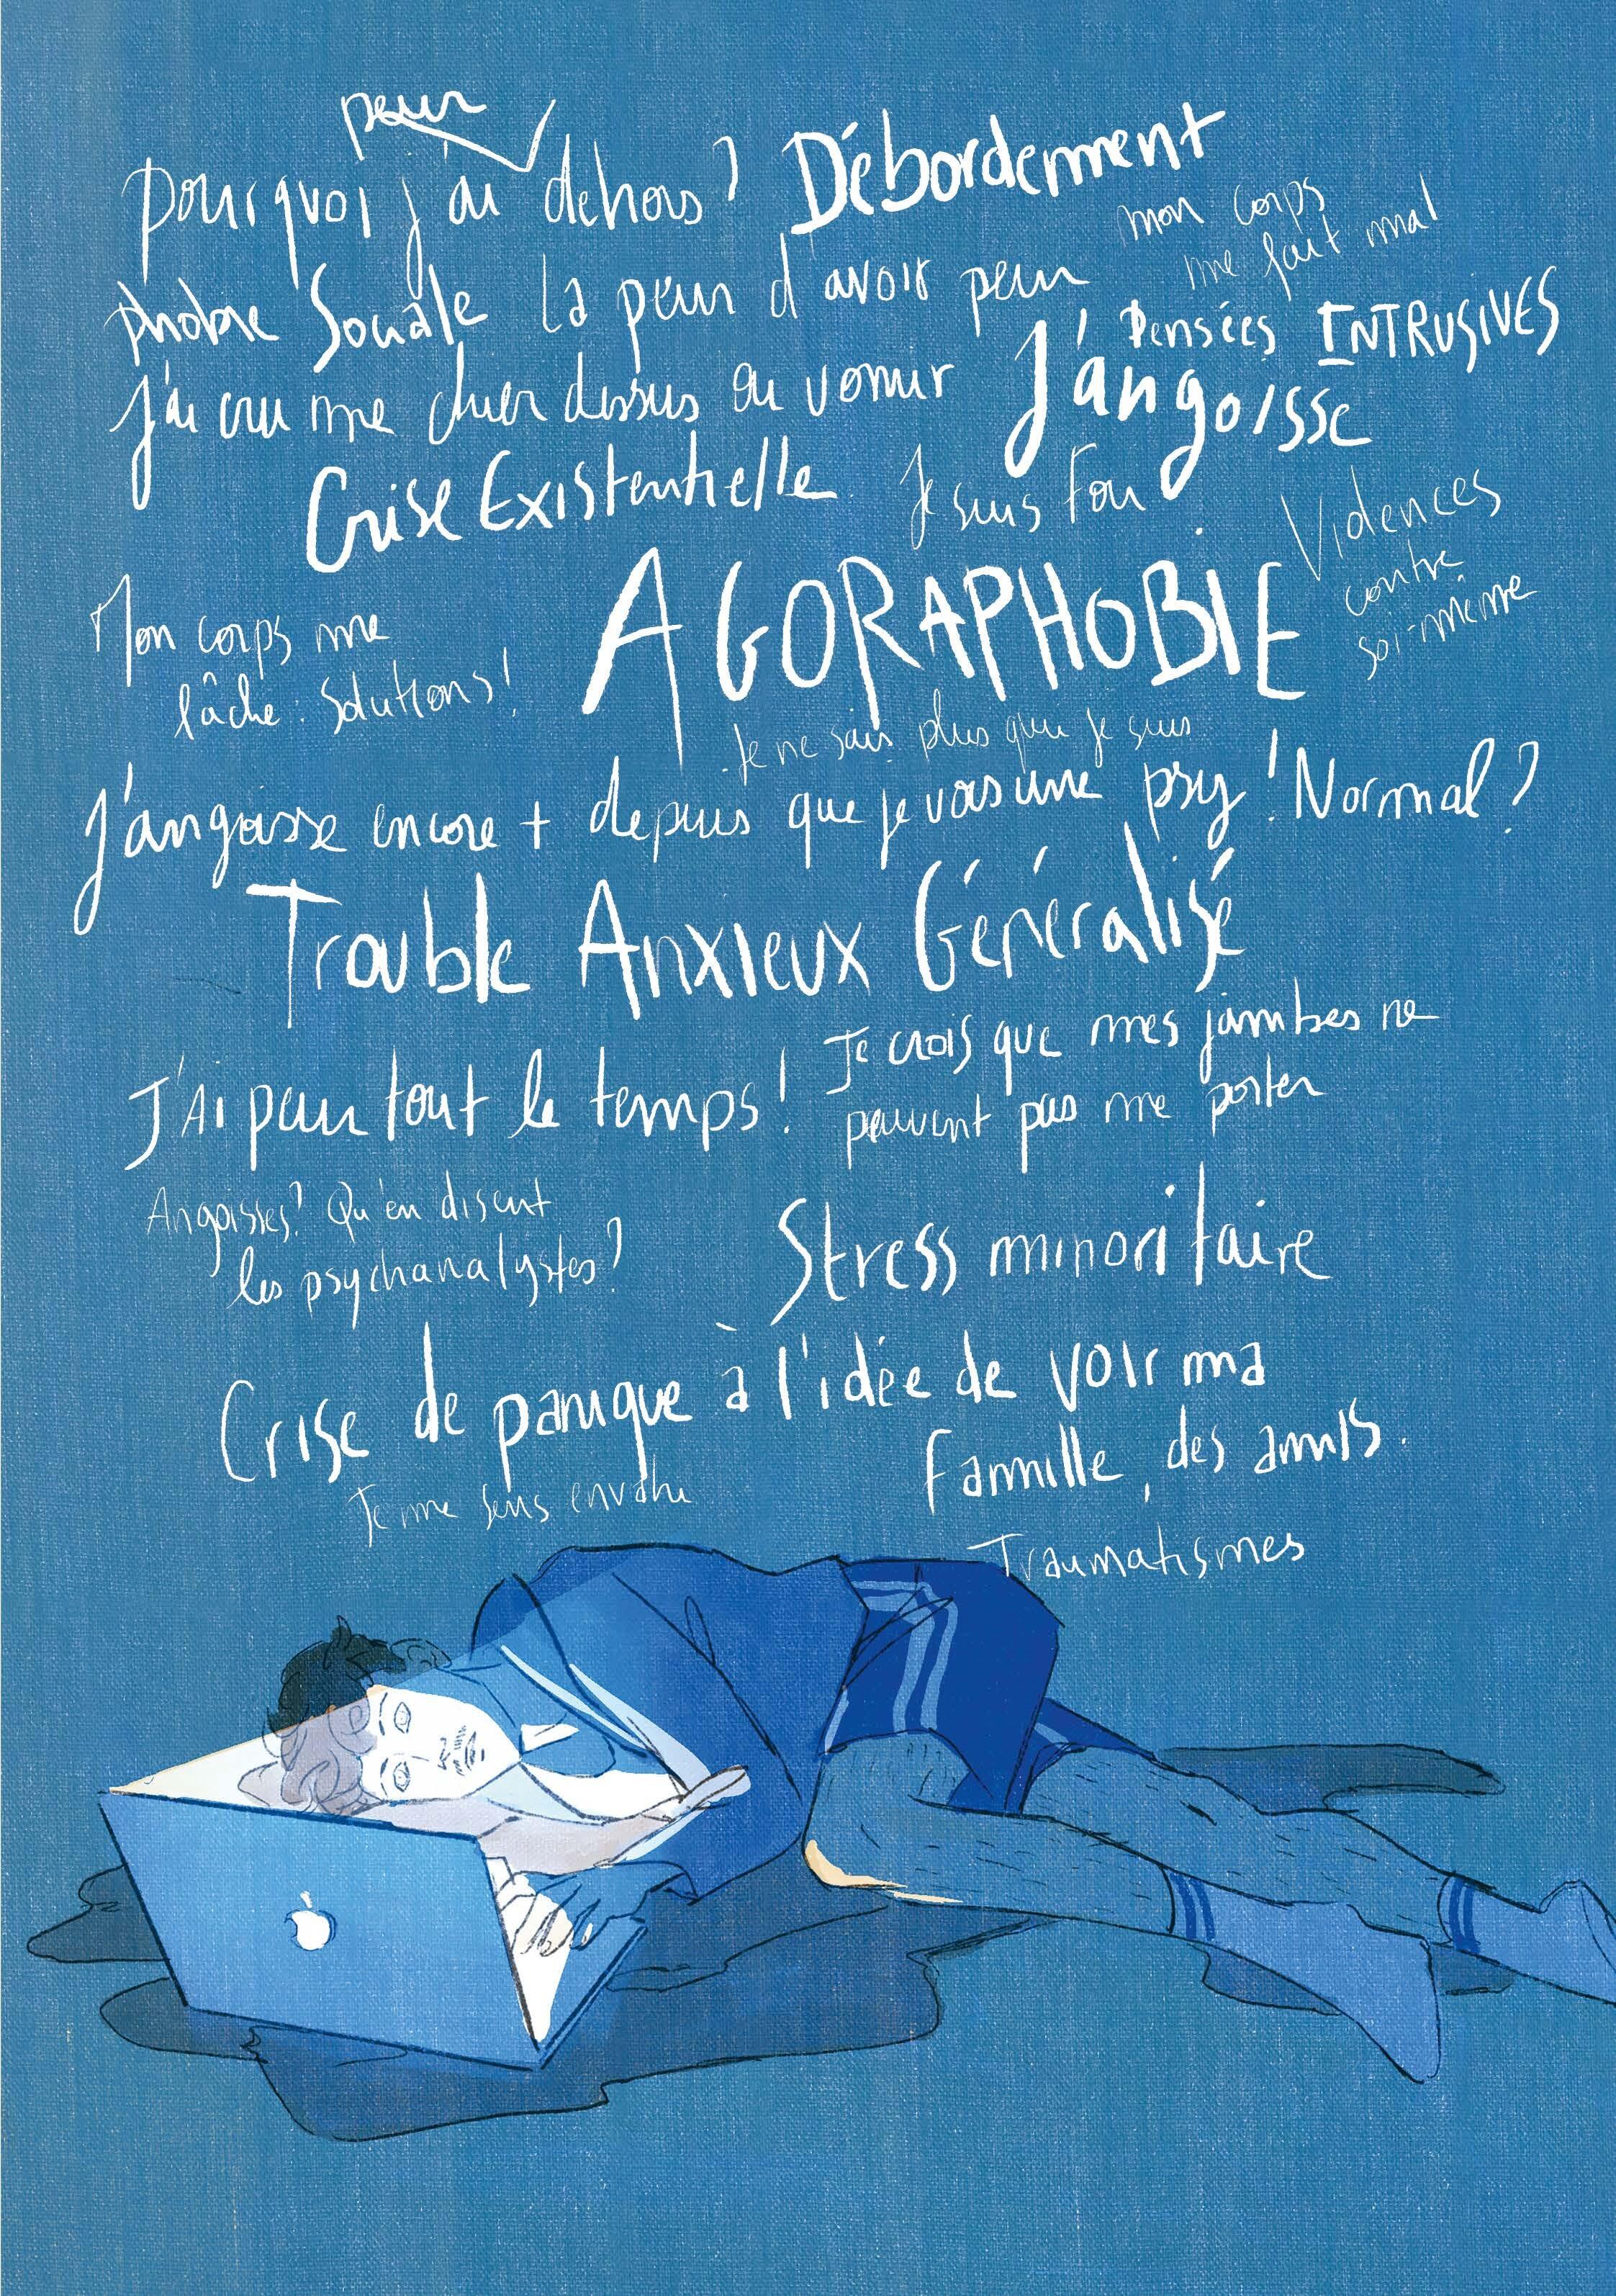 peur
pourquoi j'ai dehors ? Débordement
mon corps
me fait mal
phobie Sociale la peur d'avoir peur
Pensées INTRUSIVES
j'ai cru me chier dessus ou vomir J'angoisse
Crise Existentielle Je suis Fou
Violences
contre
soi-même
AGORAPHOBIE
Mon corps me
lâche : Solutions !
Je ne sais plus qui je suis
J'angoisse encore + depuis que je vois une psy ! Normal ?
Trouble Anxieux Généralisé
Je crois que mes jambes ne
peuvent pas me porter
J'Ai peur tout le temps !
Angoisses ? Qu'en disent
les psychanalystes ?
Stress minoritaire
Crise de panique à l'idée de voir ma
Famille, des amis.
Je me sens envahi
Traumatismes